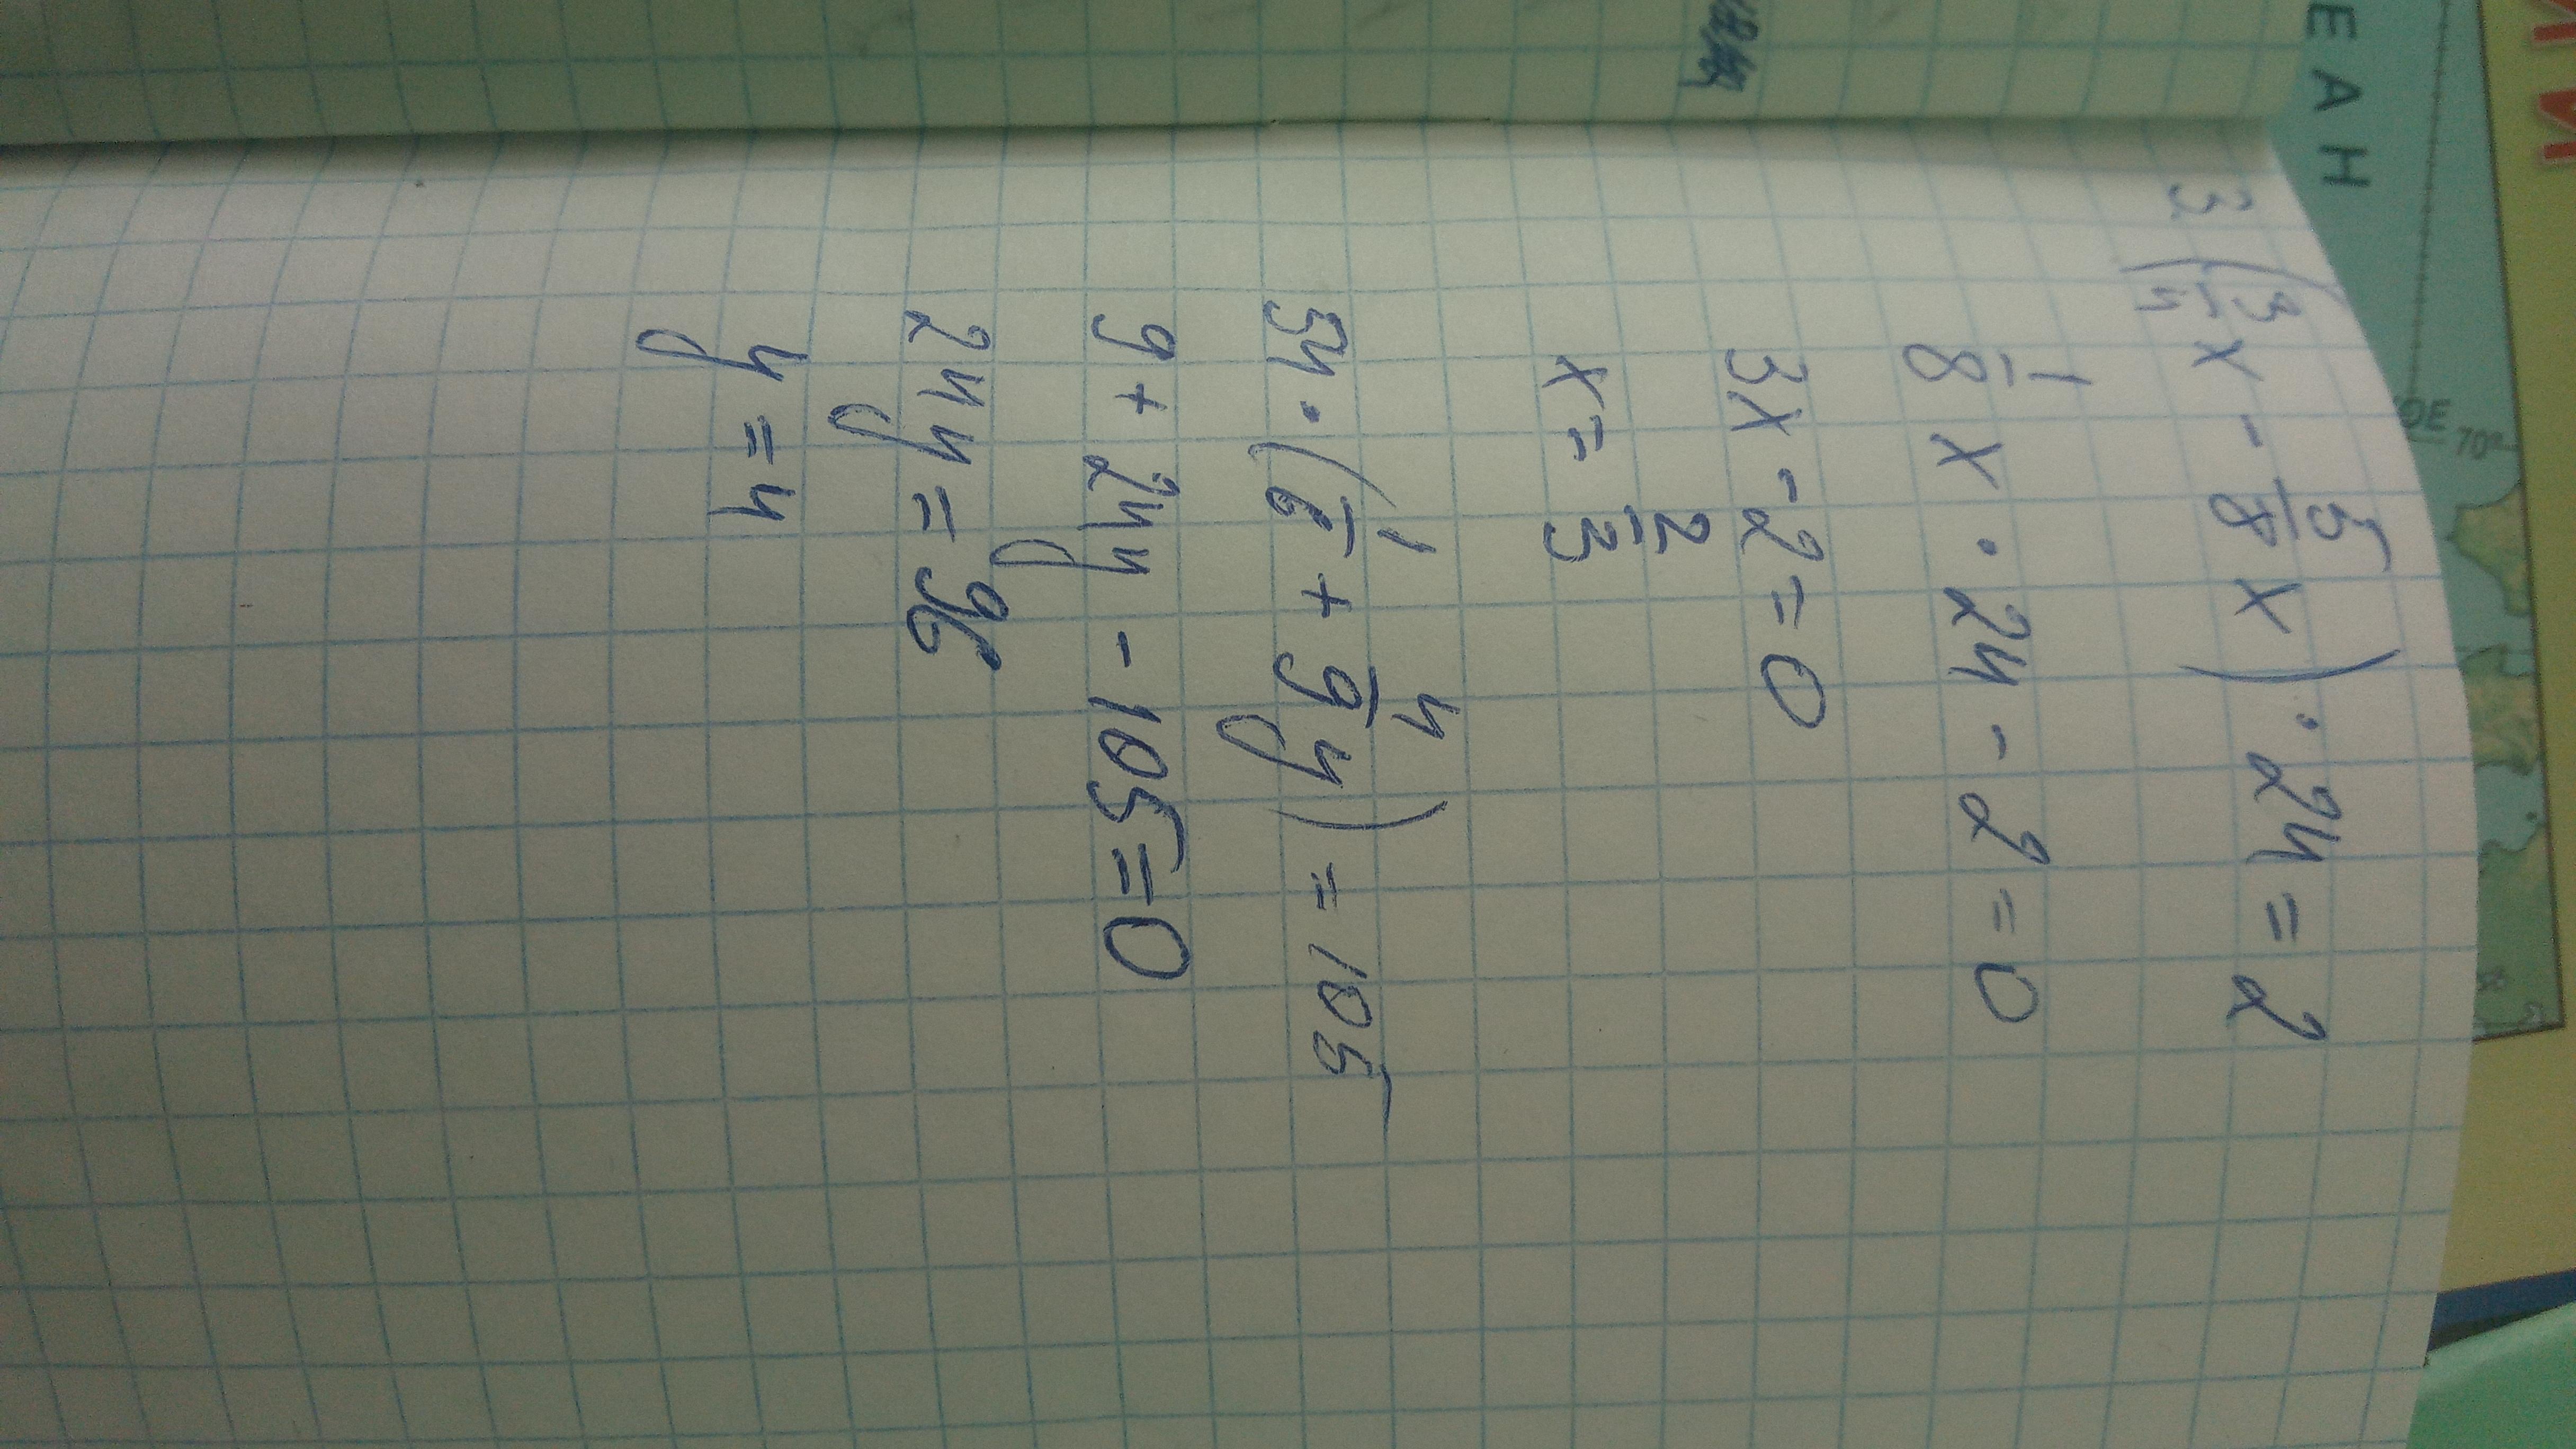 3. (3/4 x - 5/8 x) · 24 = 2
1/8 x · 24 - 2 = 0
3x - 2 = 0
x = 2/3
54 · (1/6 + 4/9 y) = 105
9 + 24y - 105 = 0
24y = 96
y = 4
ЕАН
70°